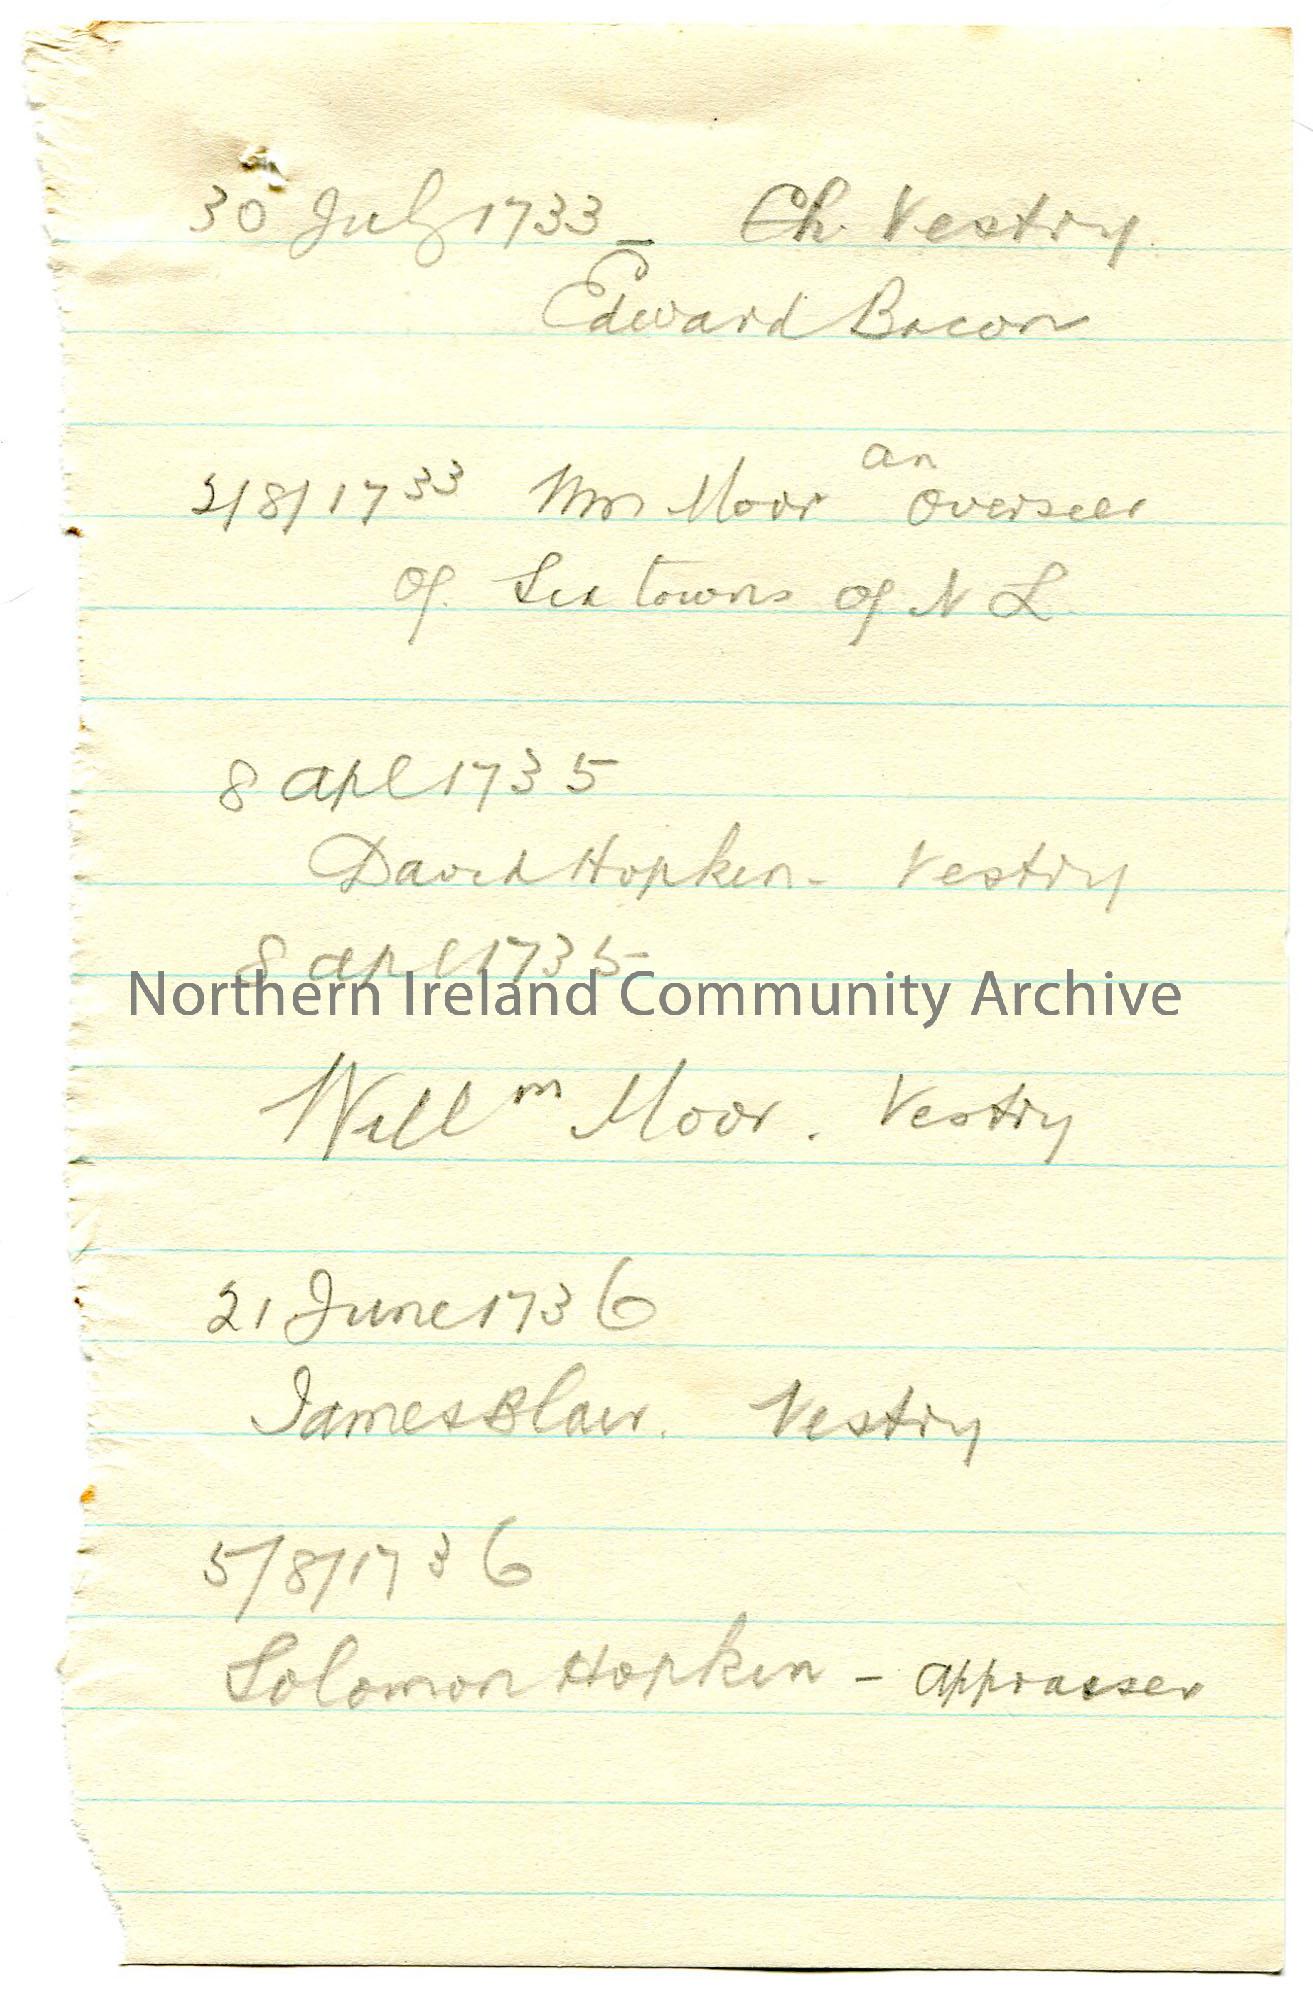 30 July 1733 – Ch. Vestry
Edward Bacon
an
2/8/1733 Wm Moor Overseer
of Six towns of N L
8 apl 1735
David Hopkin - Vestry
8 apl 1735
Northern Ireland Community Archive
Willm Moor. Vestry
21 June 1736
James Blair. Vestry
5/8/1736
Solomon Hopkin - appraiser